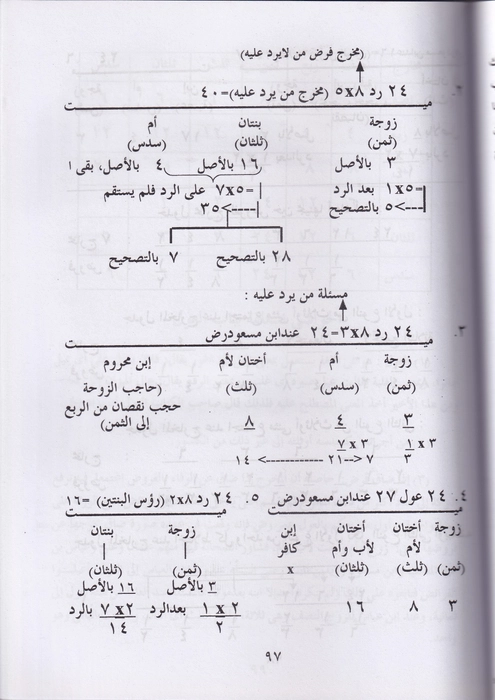 (مخرج فرض من لايرد عليه)
٢٤ رد ٥x٨ (مخرج من يرد عليه)=٤٠
ميـــــــت
زوجة بنتان أم
(ثمن) (ثلثان) (سدس)
٣ بالأصل ١٦ بالأصل ٤ بالأصل، بقى ١
١x٥= بعد الرد =٧x٥ على الرد فلم يستقم
<---- ٥ بالتصحيح <----٣٥
٢٨ بالتصحيح ٧ بالتصحيح
مسئلة من يرد عليه :
٣. ٢٤ رد ٣x٨=٢٤ عندابن مسعودرض
ميـــــــت
زوجة أم أختان لأم إبن محروم
(ثمن) (سدس) (ثلث) (حاجب الزوحة
حجب نقصان من الربع
إلى الثمن)
٣ ٤ ٨
١ x٣ ٧ x٣
٣ ٧ <--٢١ -----------> ١٤
٤. ٢٤ عول ٢٧ عندابن مسعودرض
زوجة أختان أختان إبن
لأم لأب وأم كافر
(ثمن) (ثلث) (ثلثان) x
٣ ٨ ١٦
٥. ٢٤ رد ٢x٨ (رؤس البنتين) =١٦
ميـــــــت
زوجة بنتان
(ثمن) (ثلثان)
٣ بالأصل ١٦ بالأصل
١ x ٢ بعدالرد ٧ x٢ بالرد
٢ ١٤
٩٧